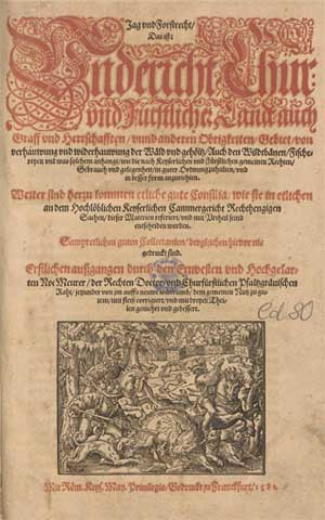 Jag vnd Forstrecht/
Das ist:
Vndericht Chur-
vnd Fürstlicher Land/ auch
Graff vnd Herrschafften/ vnnd anderen Obrigkeiten/ Gebiet/ von
verhauwung vnd widerhauwung der Wäld vnd gehöltz/ Auch den Wildtbänen/ Fische-
reyen vnd was solchem anhangt/ wie die nach Keyserlichen vnd Fürstlichen gemeinen Rechten/
Gebrauch vnd gelegenheit/ in guter Ordnung zuhalten/ vnd
in besser form anzurichten.
Weiter sind herzu kommen etliche gute Consilia/ wie sie in etlichen
an dem Hochlöblichen Keyserlichen Cammergericht Rechthengigen
Sachen/ dieser Materien referiert/ vnd mit Vrtheil seind
entscheiden worden.
Sampt etlichen guten Collectanien/ dergleichen hievor nie
gedruckt sind.
Erstlichen außgangen durch den Ernvesten vnd Hochgelar-
ten Noe Meurer/ der Rechten Doctor/ vnd Churfürstlichen Pfaltzgräuischen
Raht/ jetzunder von jm auffs neuwe widerumb/ dem gemeinen Nutz zu gu-
tem/ mit fleiß corrigiert/ vnd mit dreyen Thei-
len gemehrt vnd gebessert.
ed. 80
Mit Röm. Keys. May. Priuilegio/ Gedruckt zu Franckfurt/